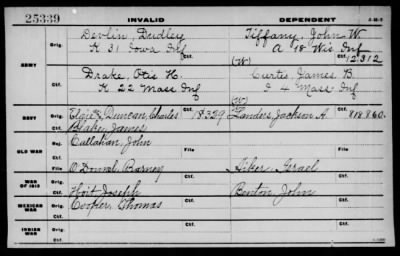 25339 INVALID DEPENDENT
ARMY
Orig. Devlin, Dudley Tiffany, John W.
K 31 Iowa Inf A 18 Wis Inf
Ctf. (W) Ctf. 12312
Orig. Drake, Otis H. Curtis, James B.
K 22 Mass Inf I 4 Mass Inf
Ctf. (W) Ctf.
NAVY Orig. Duncan, Charles Ctf. 18329 Landers, Jackson A. Ctf. 818860.
Blake, James
OLD WAR
Orig. Callahan, John
Ctf. File Ctf. File
Orig. O'Donnal, Barney Aiker, Israel
WAR OF 1812
Orig. Hoit, Joseph Benton, John
Ctf.
MEXICAN WAR
Orig. Cooper, Thomas
Ctf.
INDIAN WAR
Orig.
Ctf.